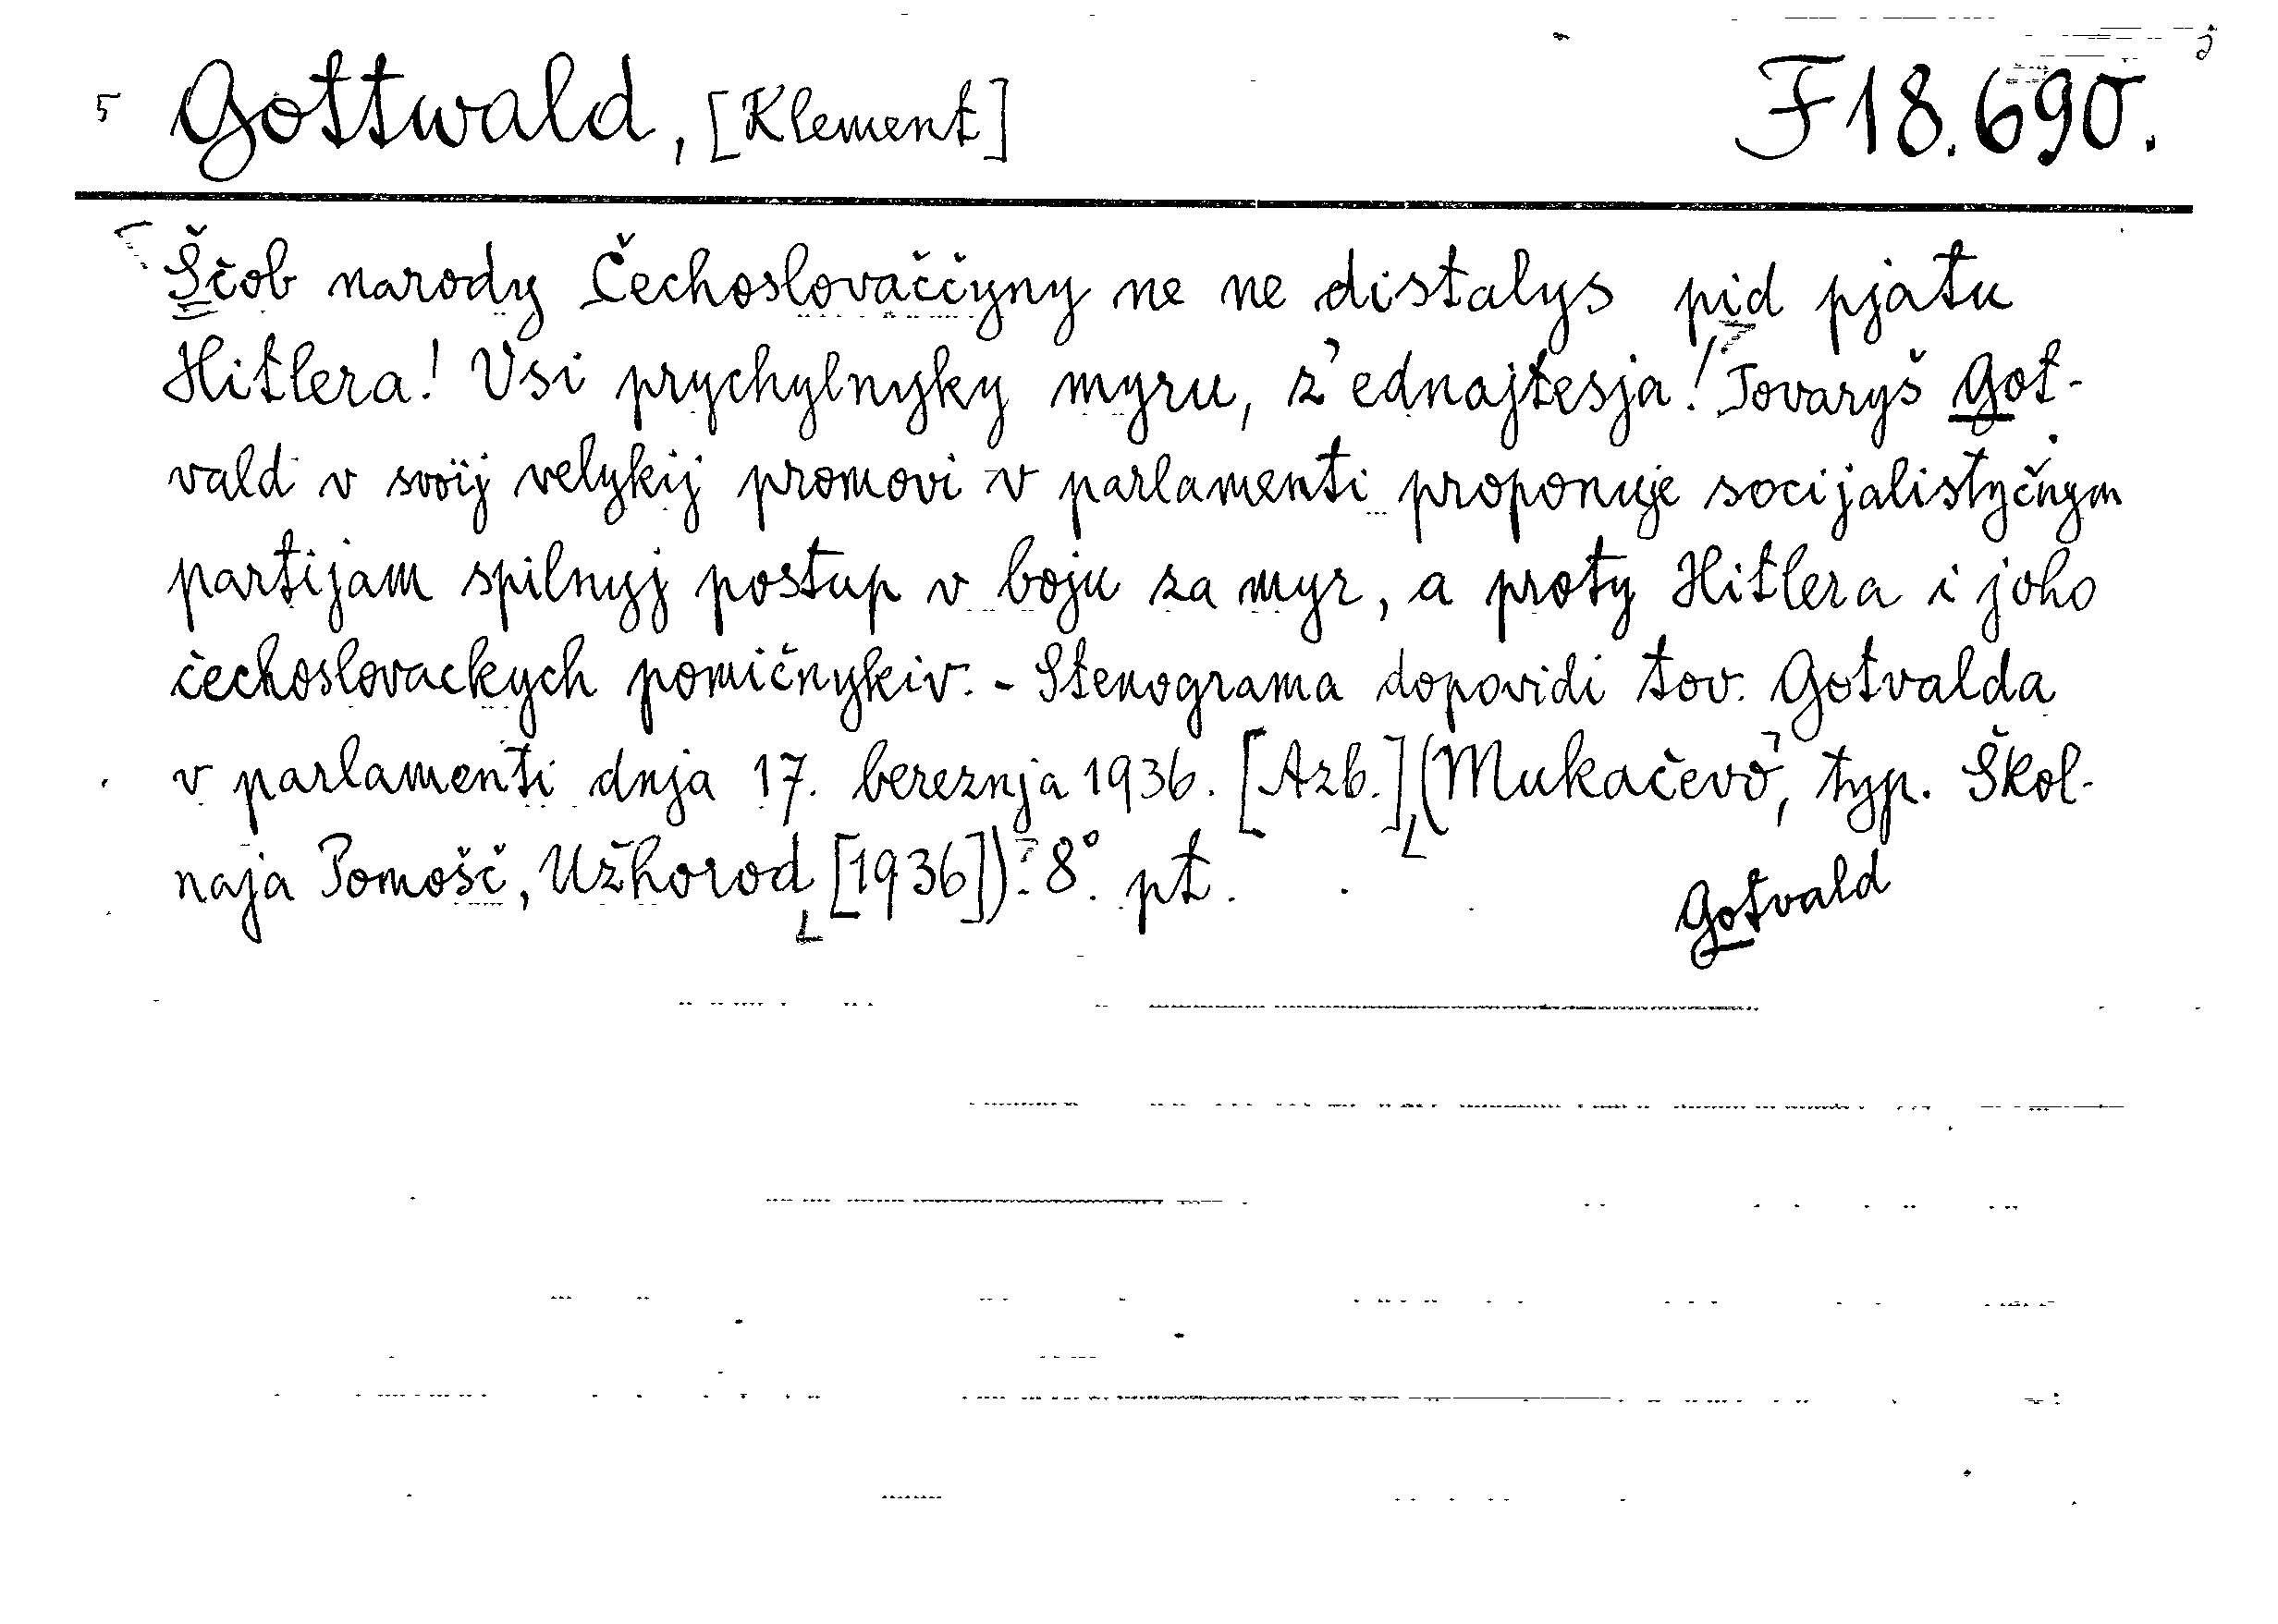 5 Gottwald, [Klement] F 18.690.
Ščob narody Čechoslovaččyny ne ne distalys pid pjatu
Hitlera! Vsi prychylnyky myru, z'ednajtesja! Tovaryš Got-
vald v svoïj velykij promovi v parlamenti proponuje socijalistyčnym
partijam spilnyj postup v boju za myr, a proty Hitlera i joho
čechoslovackych pomičnykiv. - Stenograma dopovidi tov. Gotvalda
v parlamenti dnja 17. bereznja 1936. [Azb.] (Mukačevo, typ. Škol-
naja Pomošč, Užhorod, [1936]). 8°. pt.
Gotvald